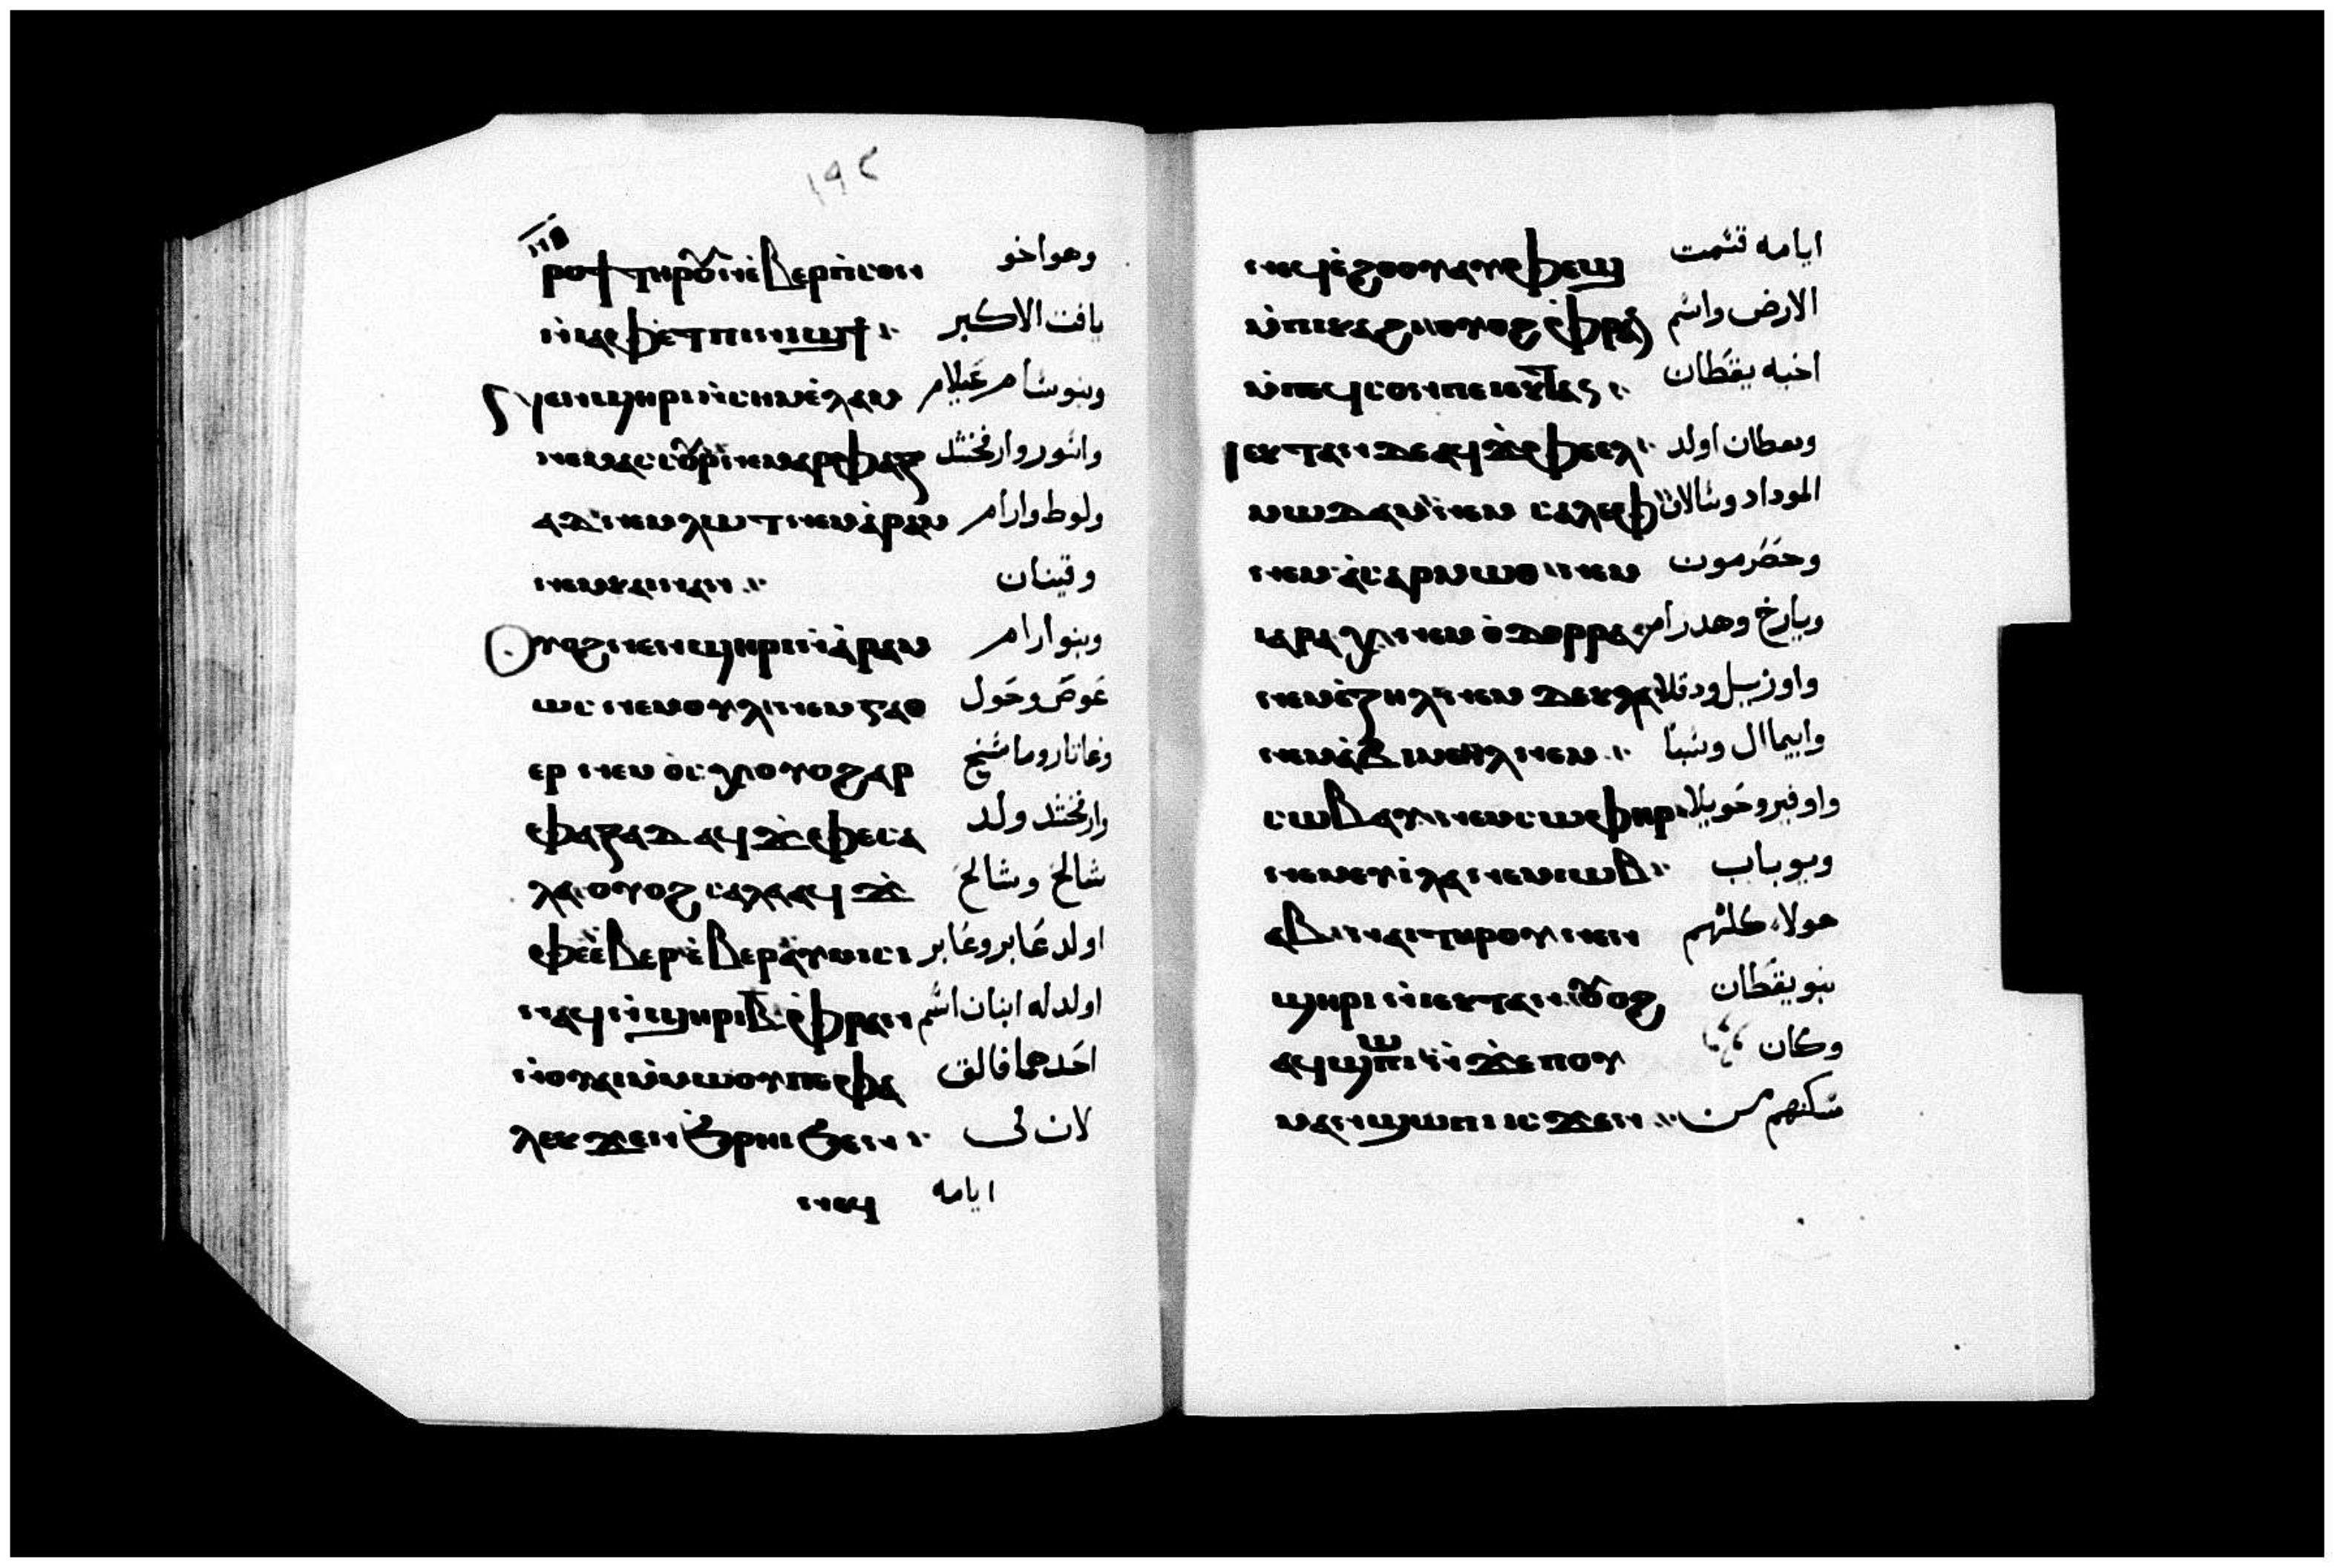 ١٩٢
ⲣⲟϥ ⲧⲏⲣⲟⲩ ⲛⲉⲃⲉⲣ ⲡⲥⲟⲛ وهو اخو
ⲛⲓⲁⲫⲉⲧ ⲡⲓⲛⲓϣϯ يافت الاكبر
ⲛⲉⲛϣⲏⲣⲓ ⲛⲥⲏⲙ ⲉⲗⲁⲙ وبنو شام عيلام
ⲛⲉⲙ ⲁⲥⲥⲟⲩⲣ ⲛⲉⲙ ⲁⲣⲫⲁⲝ واتور وارفخشد
ⲁⲇ ⲛⲉⲙ ⲗⲱⲧ ⲛⲉⲙ ⲁⲣⲁⲙ ولوط وارام
ⲛⲉⲙ ⲕⲁⲓⲛⲁⲛ وقينان
ⲩⲟϩ ⲛⲉⲛϣⲏⲣⲓ ⲛⲁⲣⲁⲙ وبنو ارام
ⲱⲥ ⲛⲉⲙ ⲟⲩⲗ ⲛⲉⲙ ⲅⲁⲑ عوص وحول
ⲉⲣ ⲛⲉⲙ ⲟⲥⲟⲭ ⲟⲩⲟϩ ⲁⲣ وغاتار وماشخ
ⲫⲁⲝⲁⲇ ⲁϥϫⲫⲉ ⲥⲁ وارفخشد ولد
ⲗⲁ ⲟⲩⲟϩ ⲥⲁⲗⲁ ⲁϥϫ شالخ وشالخ
ⲫⲉ ⲉⲃⲉⲣ ⲉⲃⲉⲣ ⲁⲩⲙⲓⲥⲓ اولد عابر وعابر
ⲛⲁϥ ⲛϣⲏⲣⲓ ⲃ ⲫⲣⲁⲛ اولد له ابنان اسم
ⲛⲟⲩⲁⲓ ⲙⲙⲱⲟⲩ ⲡⲉ ⲫⲁ احدهما فالق
ⲗⲉⲕ ϫⲉ ⲛϩⲣⲏⲓ ϧⲉⲛ لان في
ⲛⲉϥ ايامه
ⲛⲉϥⲉϩⲟⲟⲩ ⲁⲩⲫⲉϣ ايامه قسمت
ⲙⲡⲓⲕⲁϩⲓ ⲟⲩⲟϩ ⲫⲣⲁⲛ الارض واسم
ⲙⲡⲉϥⲥⲟⲛ ⲡⲉ ⲓⲉⲕⲧⲁⲛ اخيه يقطان
ⲓⲉⲕⲧⲁⲛ ⲇⲉ ⲁϥϫⲫⲉ ⲉⲗ ويقطان اولد
ⲙⲱⲇⲁⲙ ⲛⲉⲙ ⲥⲁⲗⲉⲫ الموداد وشالاف
ⲛⲉⲙ ⲁⲥⲁⲣⲙⲱⲑ ⲛⲉⲙ وحضرمون
ⲓⲁⲣⲁⲭ ⲛⲉⲙ ⲟⲇⲟⲣⲣⲁ ويارخ وهدرام
ⲛⲉⲙ ⲉⲍⲏⲗ ⲛⲉⲙ ⲇⲉⲕⲗⲁ واوزيل ودقلا
ⲛⲉⲙ ⲁⲃⲓⲙⲉⲏⲗ ⲛⲉⲙ وابيمال وشبا
ⲥⲱⲃⲁⲩ ⲛⲉⲙ ⲥⲱⲫⲏⲣ واوفير وحويلا
ⲛⲉⲙ ⲉⲩⲓⲗⲁ ⲛⲉⲙ ⲓⲱⲃ ويوباب
ⲁⲃ ⲛⲁⲓ ⲧⲏⲣⲟⲩ ⲛⲉⲛ هولاء كلهم
ϣⲏⲣⲓ ⲛⲓⲉⲕⲧⲁⲛ ⲟⲩⲟϩ بنو يقطان
ⲁϥϣⲱⲡⲓ ⲛϫⲉ ⲡⲟⲩ وكان
ⲙⲁⲛϣⲱⲡⲓ ⲓⲥϫⲉⲛ سكنهم من